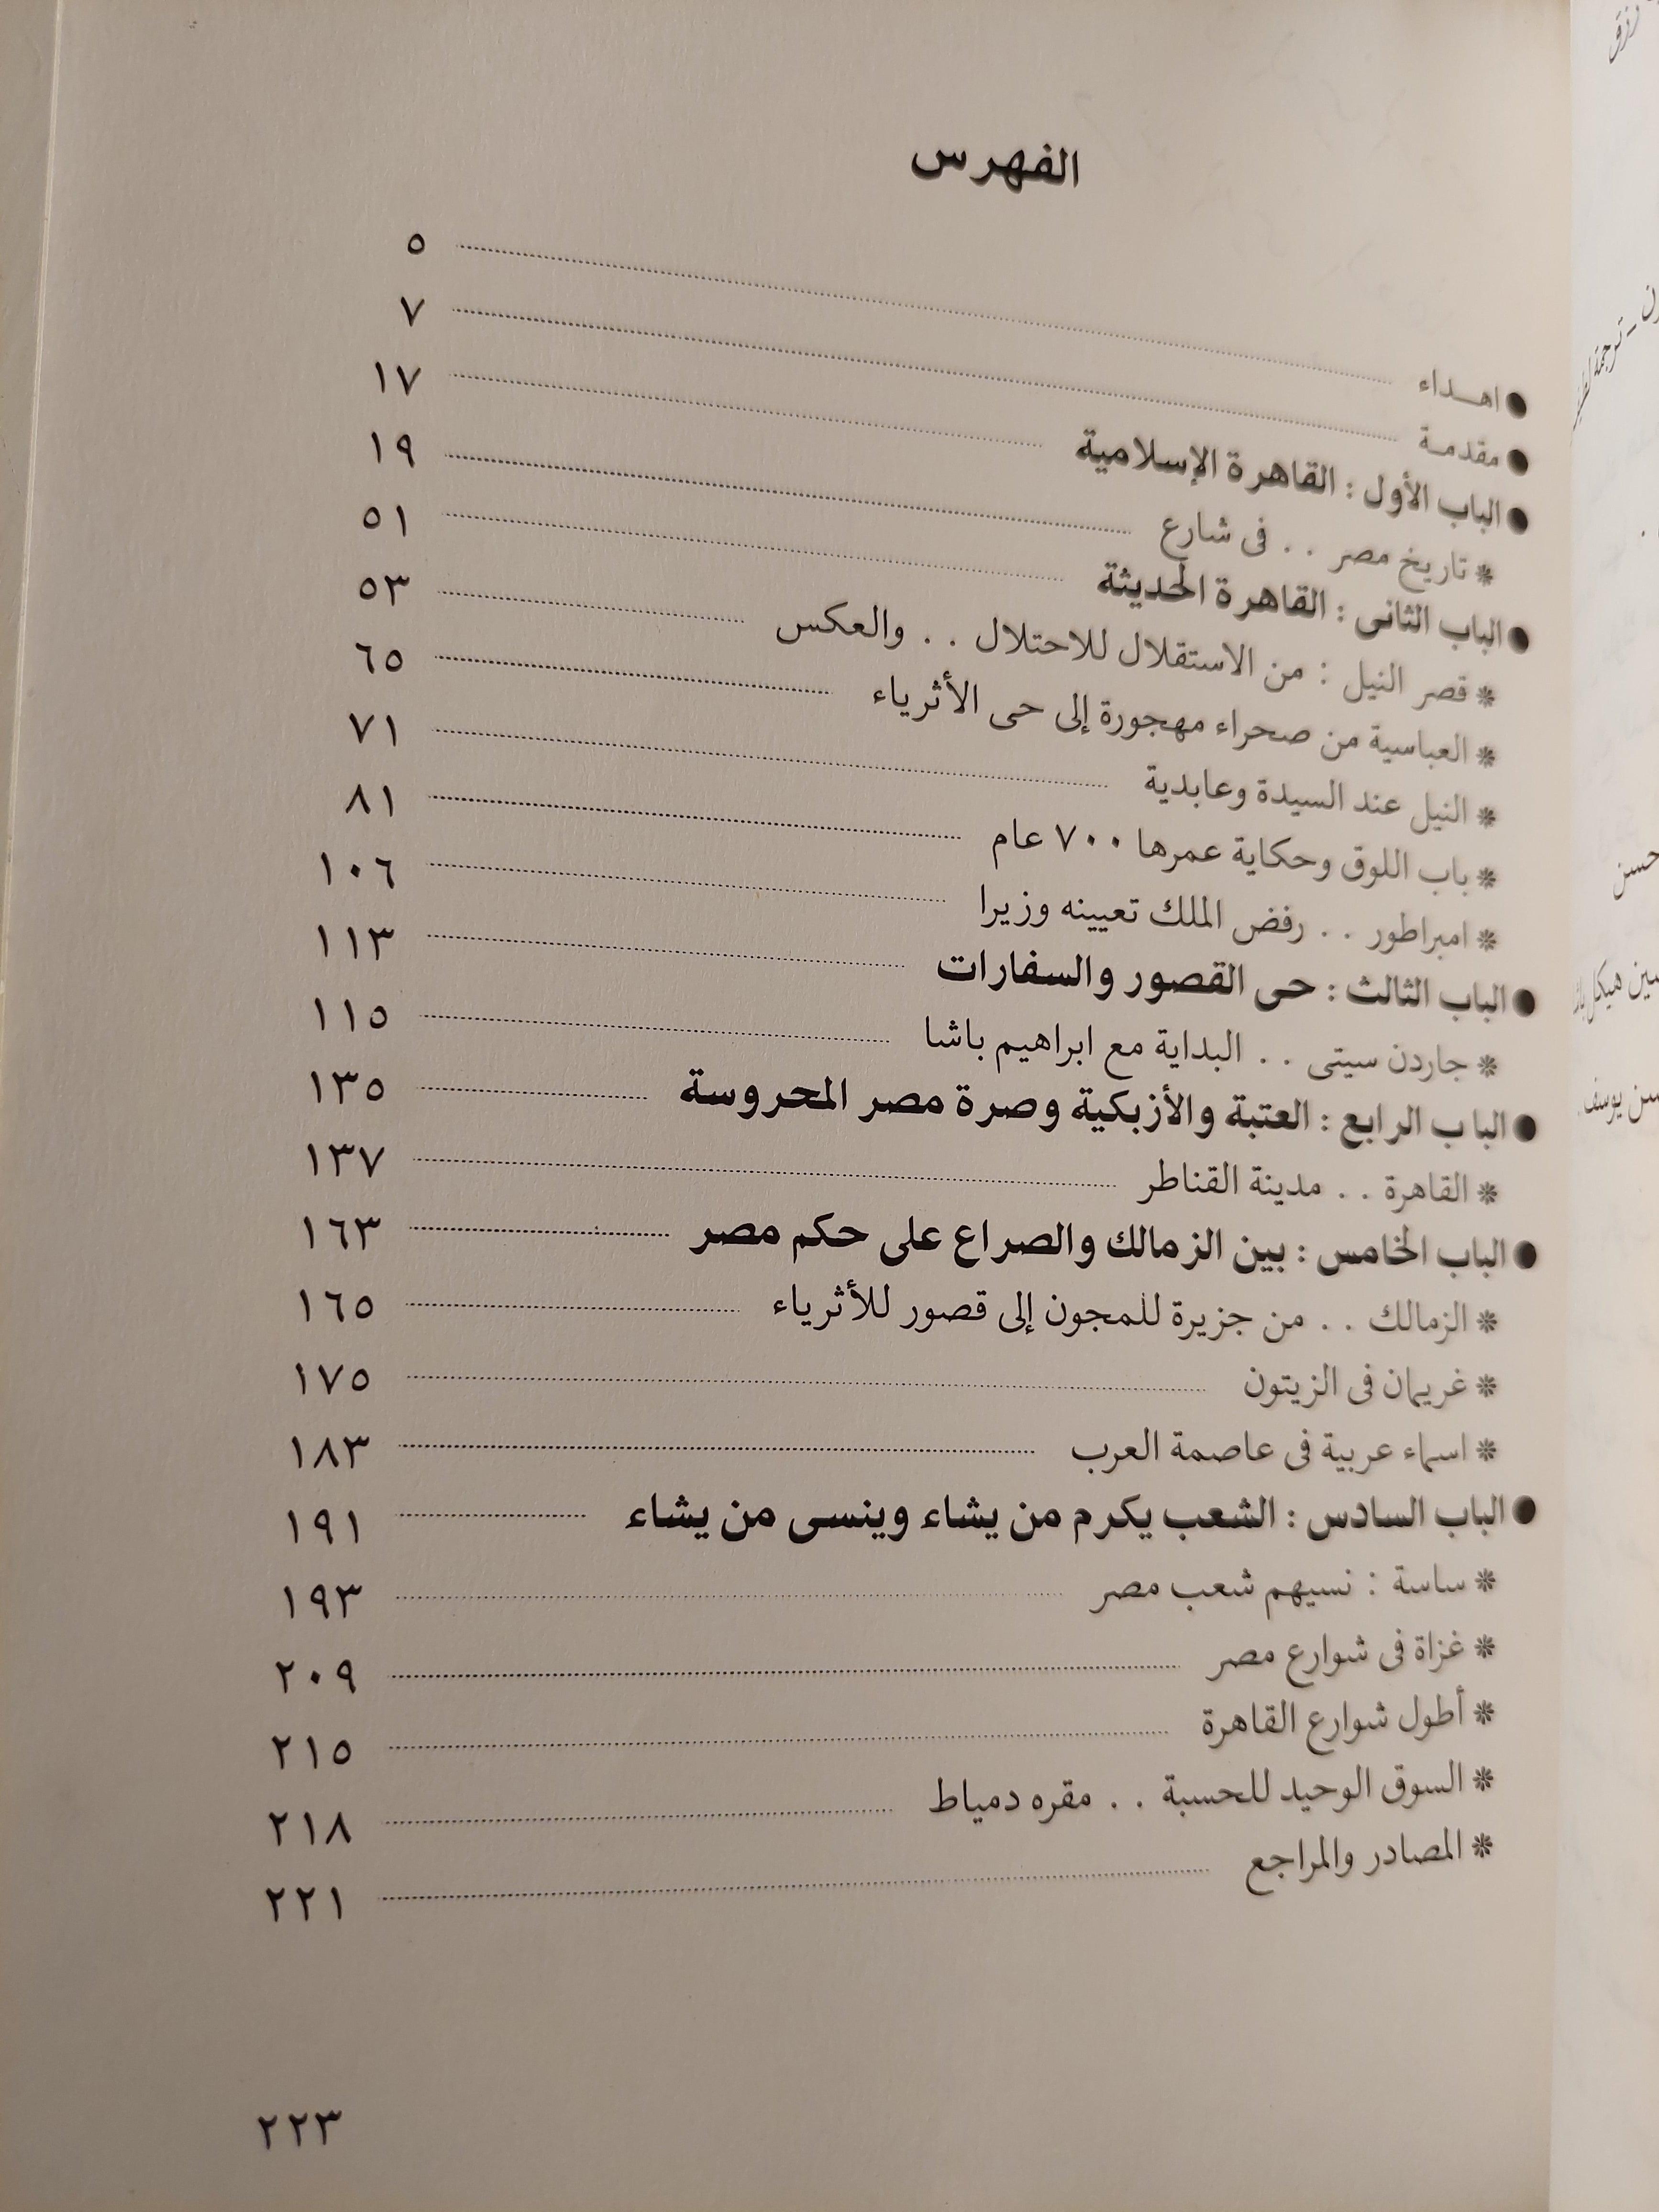 الفهرس
● اهـداء ........ ٥
● مقدمـة ........ ٧
● الباب الأول : القاهرة الإسلامية ........ ١٧
* تاريخ مصر . . فى شارع ........ ١٩
● الباب الثانى : القاهرة الحديثة ........ ٥١
* قصر النيل : من الاستقلال للاحتلال . . والعكس ........ ٥٣
* العباسية من صحراء مهجورة إلى حى الأثرياء ........ ٦٥
* النيل عند السيدة وعابدية ........ ٧١
* باب اللوق وحكاية عمرها ٧٠٠ عام ........ ٨١
* امبراطور . . رفض الملك تعيينه وزيرا ........ ١٠٦
● الباب الثالث : حى القصور والسفارات ........ ١١٣
* جاردن سيتى . . البداية مع ابراهيم باشا ........ ١١٥
● الباب الرابع : العتبة والأزبكية وصرة مصر المحروسة ........ ١٣٥
* القاهرة . . مدينة القناطر ........ ١٣٧
● الباب الخامس : بين الزمالك والصراع على حكم مصر ........ ١٦٣
* الزمالك . . من جزيرة للمجون إلى قصور للأثرياء ........ ١٦٥
* غريمان فى الزيتون ........ ١٧٥
* اسماء عربية فى عاصمة العرب ........ ١٨٣
● الباب السادس : الشعب يكرم من يشاء وينسى من يشاء ........ ١٩١
* ساسة : نسيهم شعب مصر ........ ١٩٣
* غزاة فى شوارع مصر ........ ٢٠٩
* أطول شوارع القاهرة ........ ٢١٥
* السوق الوحيد للحسبة . . مقره دمياط ........ ٢١٨
* المصادر والمراجع ........ ٢٢١
٢٢٣
رزق
ترجمة
حسن
هيكل
يوسف